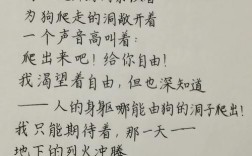 为狗爬走的洞敞开着
一个声音高叫着:
爬出来吧!给你自由!
我渴望着自由,但也深知道
——人的身躯哪能由狗的洞子爬出!
我只能期待着,那一天——
地下的烈火冲腾